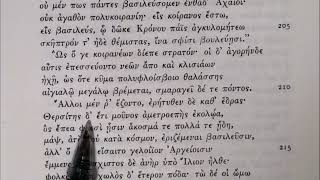 οὐ μέν πως πάντες βασιλεύσομεν ἐνθάδ' Ἀχαιοί·
οὐκ ἀγαθὸν πολυκοιρανίη· εἷς κοίρανος ἔστω,
εἷς βασιλεύς, ᾧ δῶκε Κρόνου πάϊς ἀγκυλομήτεω 205
σκῆπτρόν τ' ἠδὲ θέμιστας, ἵνα σφίσι βουλεύῃσι."
Ὣς ὅ γε κοιρανέων δίεπε στρατόν· οἱ δ' ἀγορήνδε
αὖτις ἐπεσσεύοντο νεῶν ἄπο καὶ κλισιάων
ἠχῇ, ὡς ὅτε κῦμα πολυφλοίσβοιο θαλάσσης
αἰγιαλῷ μεγάλῳ βρέμεται, σμαραγεῖ δέ τε πόντος. 210
Ἄλλοι μέν ῥ' ἕζοντο, ἐρήτυθεν δὲ καθ' ἕδρας·
Θερσίτης δ' ἔτι μοῦνος ἀμετροεπὴς ἐκολῴα,
ὃς ἔπεα φρεσὶν ᾗσιν ἄκοσμά τε πολλά τε ᾔδη,
μάψ, ἀτὰρ οὐ κατὰ κόσμον, ἐριζέμεναι βασιλεῦσιν,
ἀλλ' ὅ τι οἱ εἴσαιτο γελοίϊον Ἀργείοισιν 215
ἔμμεναι· αἴσχιστος δὲ ἀνὴρ ὑπὸ Ἴλιον ἦλθε·
φολκὸς ἔην, χωλὸς δ' ἕτερον πόδα· τὼ δέ οἱ